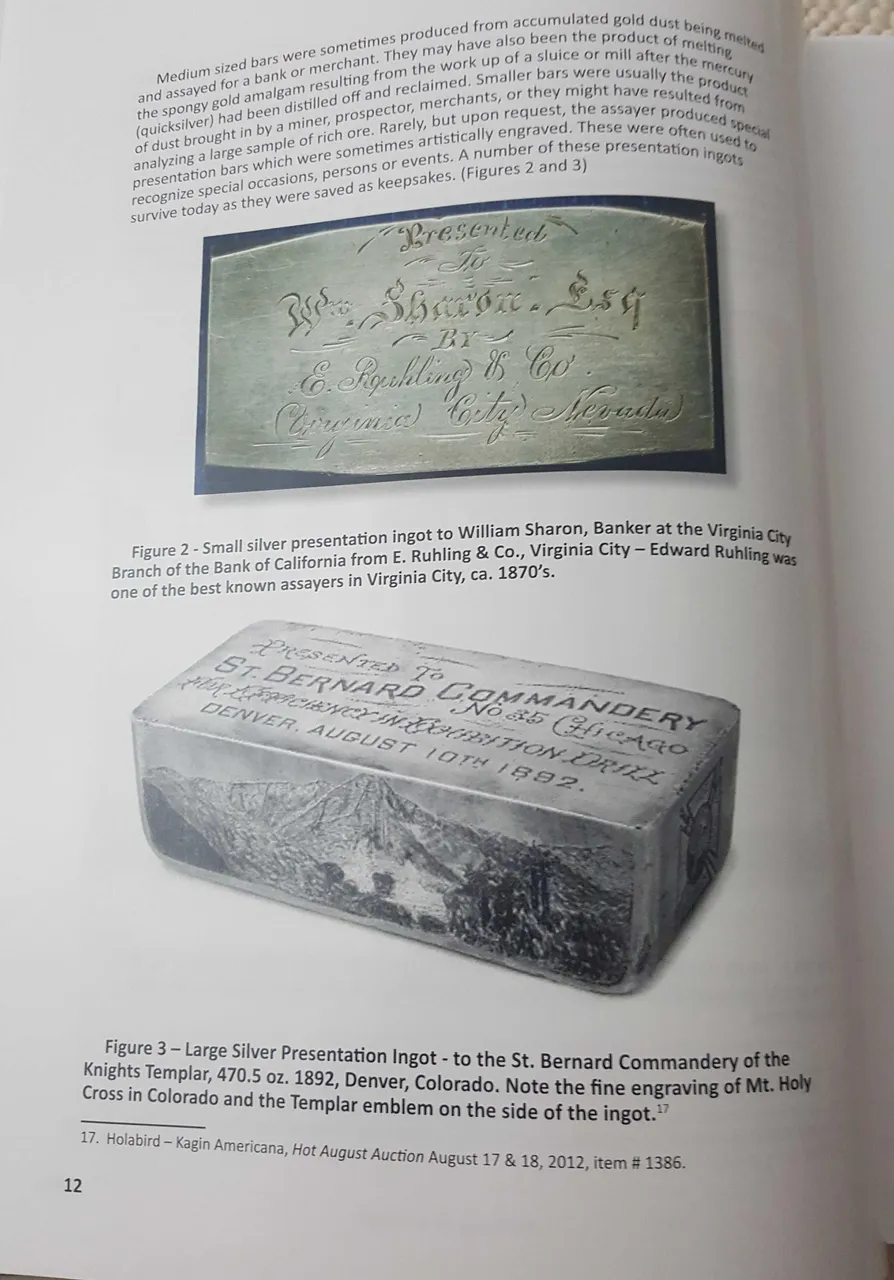 Medium sized bars were sometimes produced from accumulated gold dust being melted
and assayed for a bank or merchant. They may have also been the product of melting
the spongy gold amalgam resulting from the work up of a sluice or mill after the mercury
(quicksilver) had been distilled off and reclaimed. Smaller bars were usually the product
of dust brought in by a miner, prospector, merchants, or they might have resulted from
analyzing a large sample of rich ore. Rarely, but upon request, the assayer produced special
presentation bars which were sometimes artistically engraved. These were often used to
recognize special occasions, persons or events. A number of these presentation ingots
survive today as they were saved as keepsakes. (Figures 2 and 3)
Presented
To
Wm. Sharon. Esq
BY
E. Ruhling & Co.
Virginia City Nevada
Figure 2 - Small silver presentation ingot to William Sharon, Banker at the Virginia City
Branch of the Bank of California from E. Ruhling & Co., Virginia City – Edward Ruhling was
one of the best known assayers in Virginia City, ca. 1870's.
PRESENTED TO
ST. BERNARD COMMANDERY
No 35 CHICAGO
FOR EFFICIENCY IN EXHIBITION DRILL
DENVER, AUGUST 10TH 1892.
Figure 3 – Large Silver Presentation Ingot - to the St. Bernard Commandery of the
Knights Templar, 470.5 oz. 1892, Denver, Colorado. Note the fine engraving of Mt. Holy
Cross in Colorado and the Templar emblem on the side of the ingot.17
17. Holabird – Kagin Americana, Hot August Auction August 17 & 18, 2012, item # 1386.
12